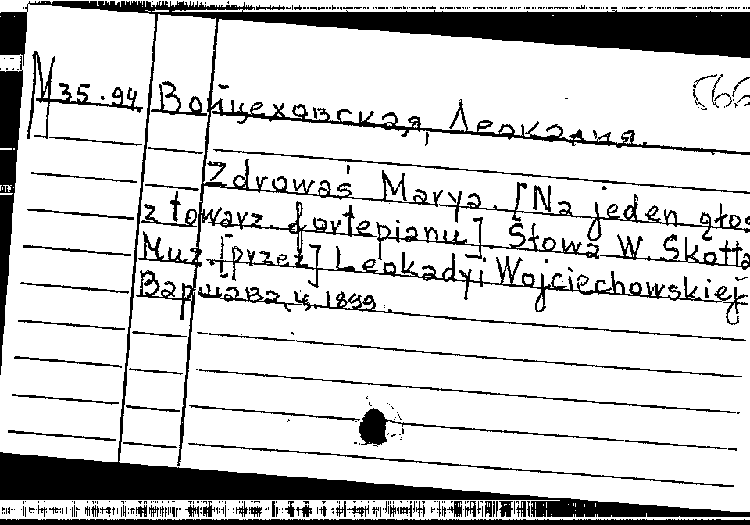 (66
М 35.94 Войцеховская, Леокадия.
Zdrowaś Marya. [Na jeden głos
z towarz. fortepianu] Słowa W. Skotta
Muz. [przez] Leokadyi Wojciechowskiej
Варшава, ц. 1899.